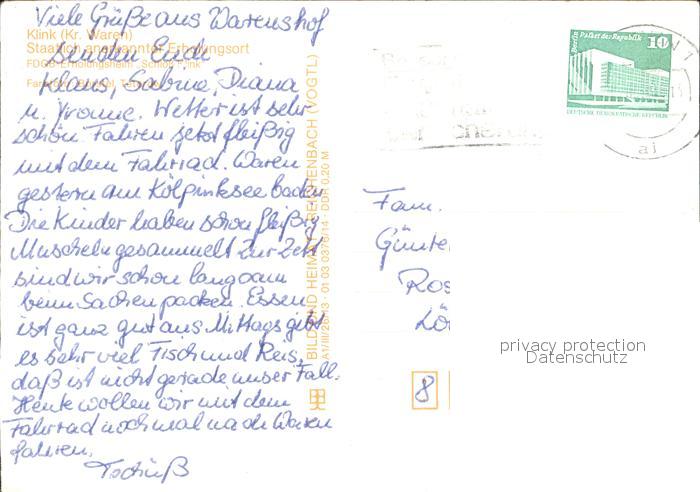 Viele Grüße aus Warenshof
senden Euch
Klaus, Sabine, Diana
u. Yvonne. Wetter ist sehr
schön Fahren jetzt fleißig
mit dem Fahrrad. Waren
gestern am Kölpinksee baden
Die Kinder haben schon fleißig
Muscheln gesammelt Zur Zeit
sind wir schon langsam
beim Sachen packen. Essen
ist ganz gut aus Mittags gibt
es sehr viel Fisch und Reis,
daß ist nicht gerade unser Fall.
Heute wollen wir mit dem
Fahrrad nochmal nach Waren
fahren.
Tschüß
Klink (Kr. Waren)
Staatlich anerkannter Erholungsort
FDGB-Erholungsheim „Schloß Klink"
BILD UND HEIMAT REICHENBACH (VOGTL)
A1/III/26/13 01 03 0376/14 DDR 0,20 M
Berlin Palast der Republik
10
DEUTSCHE DEMOKRATISCHE REPUBLIK
Fam.
Günte
Ros
Lö
8
privacy protection
Datenschutz